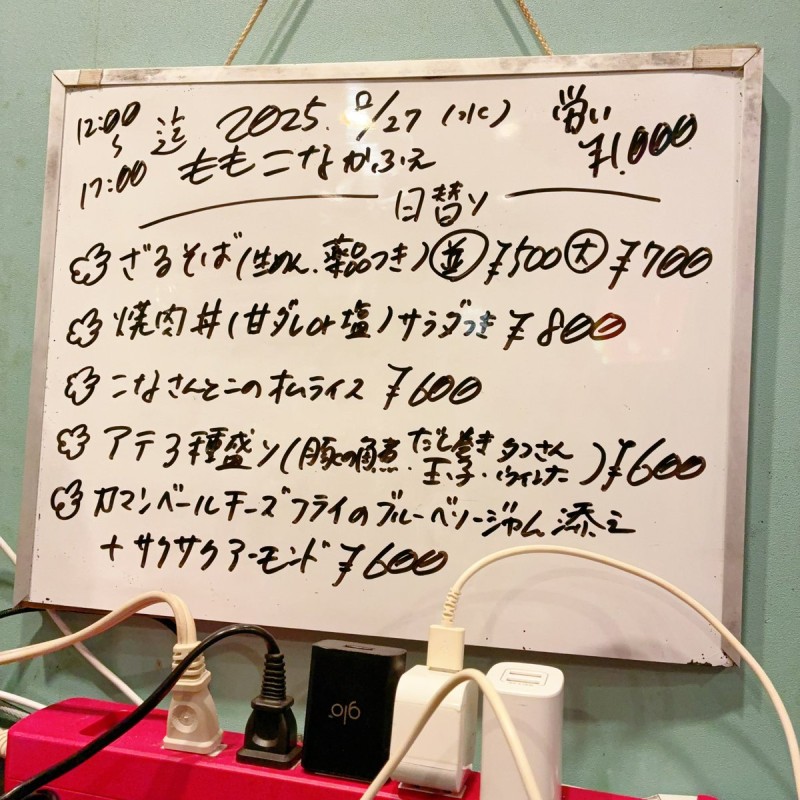 12:00
〜
17:00
迄 2025. 8/27 (水)
ももこなかふぇ
労い
¥1,000
日替り
ざるそば(生めん、薬品つき)並¥500大¥700
焼肉丼(甘ダレor塩)サラダつき ¥800
こなさんとこのオムライス ¥600
アテ3種盛り(豚の角煮・だし巻き玉子・タコさんウィンナー)¥600
カマンベールチーズフライのブルーベリージャム添え
+サクサクアーモンド ¥600
glo